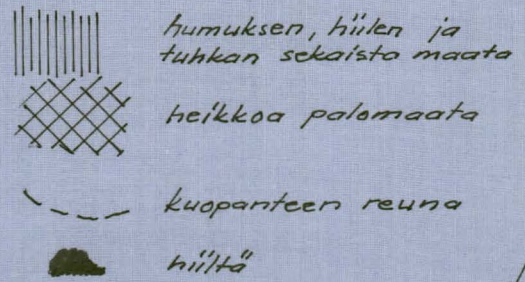 humuksen, hiilen ja
tuhkan sekaista maata
heikkoa palomaata
kuopanteen reuna
hiiltä